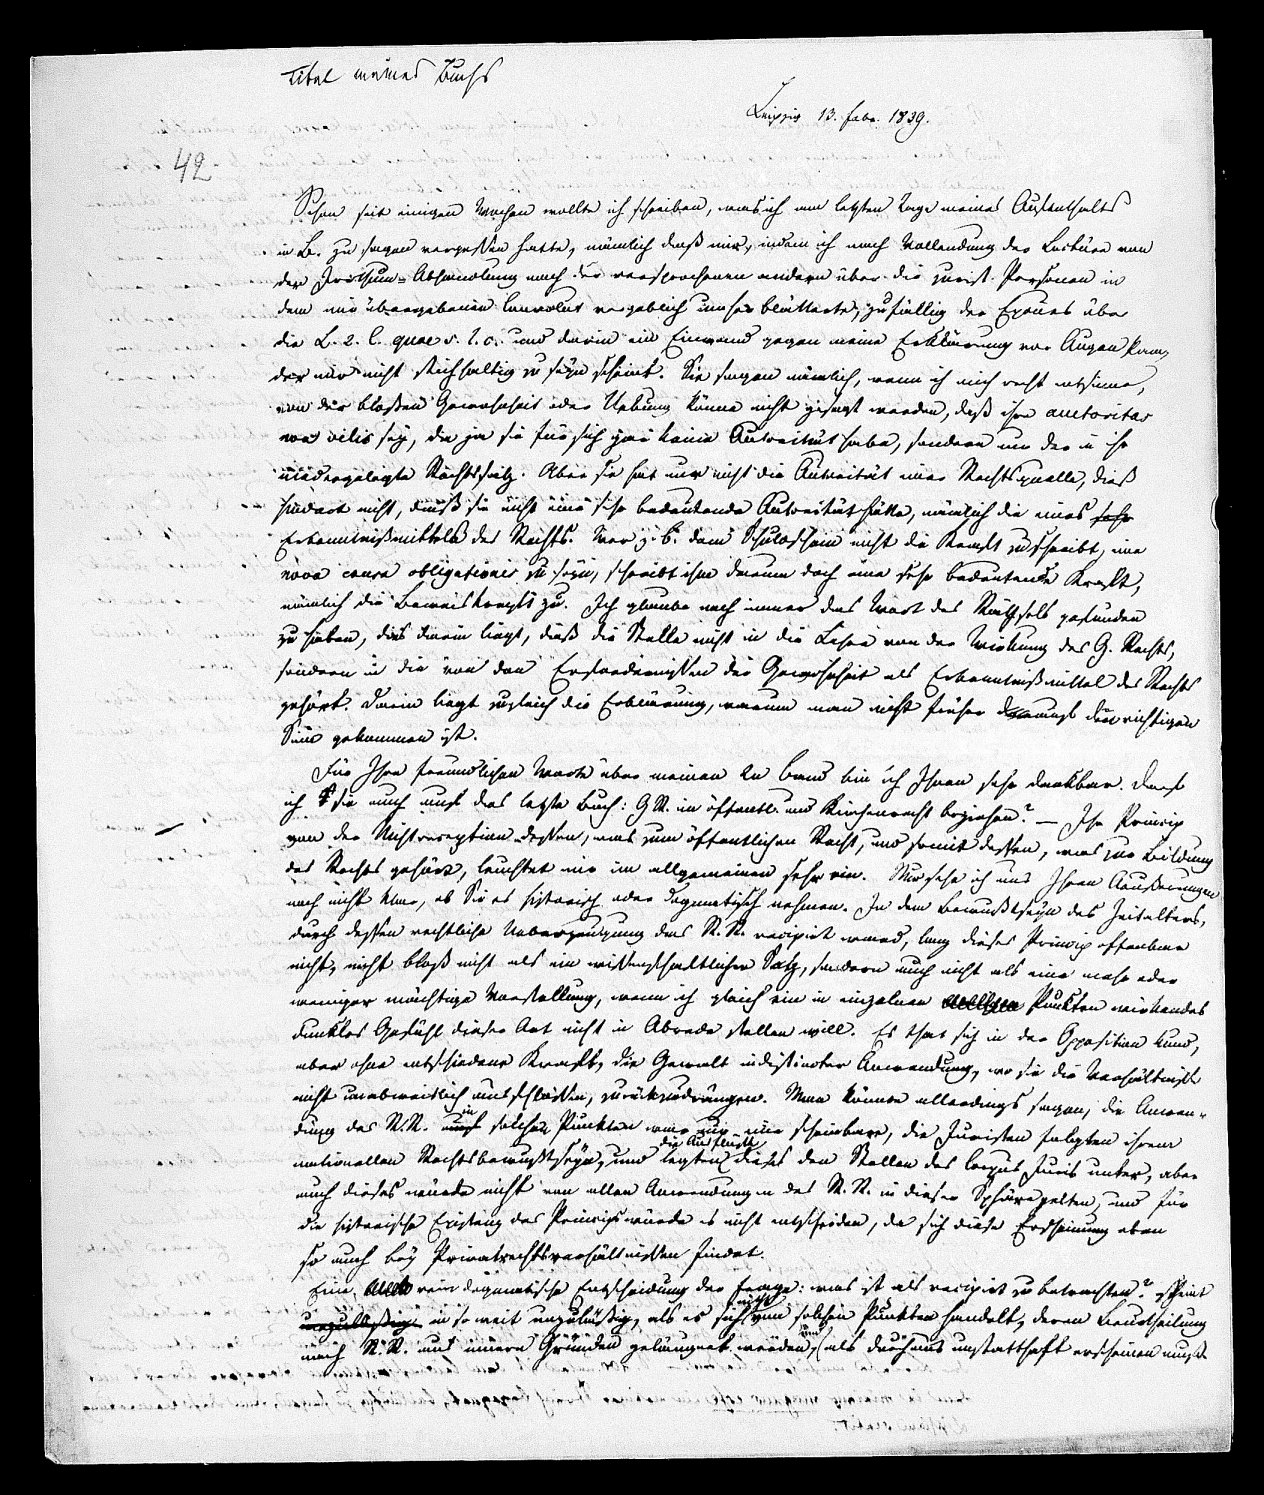 Titel meines Buchs
Leipzig 13. Febr. 1839.
42
Schon seit einigen Wochen wollte ich schreiben, was ich am letzten Tage meines Aufenthalts
in B. zu sagen vergessen hatte, nämlich daß mir, indem ich nach Vollendung der Lectüre von
der Irrthum-Abhandlung nach der versprochenen andern über die jurist. Personen in
dem mir übergebenen Convolut vergeblich umher blätterte, zufällig der Excurs über
die L. 2. C. quae s. l. c. und darin ein Einwand gegen meine Erklärung vor Augen kam,
der mir nicht stichhaltig zu seyn scheint. Sie sagen nämlich, wenn ich mich recht entsinne,
von der bloßen Gewohnheit oder Uebung könne nicht gesagt werden, daß ihre auctoritas
non vilis sey, da ja sie für sich gar keine Autorität habe, sondern nur der in ihr
niedergelegte Rechtssatz. Aber sie hat nur nicht die Autorität einer Rechtsquelle, dieß
hindert nicht, daß sie nicht eine sehr bedeutende Autorität hätte, nämlich die eines sehr
Erkenntnißmittels des Rechts. Wer z. B. dem Schuldschein nicht die Kraft zuschreibt, eine
nova causa obligationis zu seyn, schreibt ihm darum doch eine sehr bedeutende Kraft,
nämlich die Beweiskraft zu. Ich glaube noch immer das Wort des Räthsels gefunden
zu haben, das darin liegt, daß die Stelle nicht in die Lehre von der Wirkung des G. Rechts,
sondern in die von den Erfordernissen der Gewohnheit als Erkenntnißmittel des Rechts
gehört. Darin liegt zugleich die Erklärung, warum man nicht früher auf den richtigen
Sinn gekommen ist.
Für Ihre freundlichen Worte über meinen 2n Band bin ich Ihnen sehr dankbar. Darf
ich sie auch auf das letzte Buch: G R. im öffentl. und Kirchenrecht beziehen? — Ihr Princip
von der Nichtreception dessen, was zum öffentlichen Recht, und somit dessen, was zur Bildung
des Rechts gehört, leuchtet mir im allgemeinen sehr ein. Nur sehe ich aus Ihren Aeußerungen
noch nicht klar, ob Sie es historisch oder dogmatisch nehmen. In dem Bewußtseyn des Zeitalters,
durch dessen rechtliche Ueberzeugung das R. R. recipirt ward, lag dieses Princip offenbar
nicht, nicht bloß nicht als ein wissenschaftlicher Satz, sondern auch nicht als eine mehr oder
weniger mächtige Vorstellung, wenn ich gleich ein in einzelnen Punkten wirkendes
dunkles Gefühl dieser Art nicht in Abrede stellen will. Es that sich in der Opposition kund,
aber ohne entschiedene Kraft, die Gewalt indistincter Anwendung, wo sie die Verhältnisse
nicht unabweislich ausschlossen, zurückzudrängen. Man könnte allerdings sagen, die Anwen-
dung des R. R. auf in solchen Punkten war nur eine scheinbare, die Juristen folgten ihrem
nationellen Rechtsbewußtseyn, und legten die Ausflüsse dieses den Stellen des Corpus Juris unter, aber
auch dieses würde nicht von allen Anwendungen des R. R. in dieser Sphäre gelten, und für
die historische Existenz des Princips würde es nicht entscheiden, da sich diese Erscheinung eben
so auch bey Privatrechtsverhältnissen findet.
Eine rein dogmatische Entscheidung der Frage: was ist als recipirt zu betrachten? scheint
unzulässig in so weit unzulässig, als es sich nicht von solchen Punkten handelt, deren Beurtheilung
nach R. R. aus innern Gründen geläugnet werden, und als durchaus unstatthaft erscheinen muß